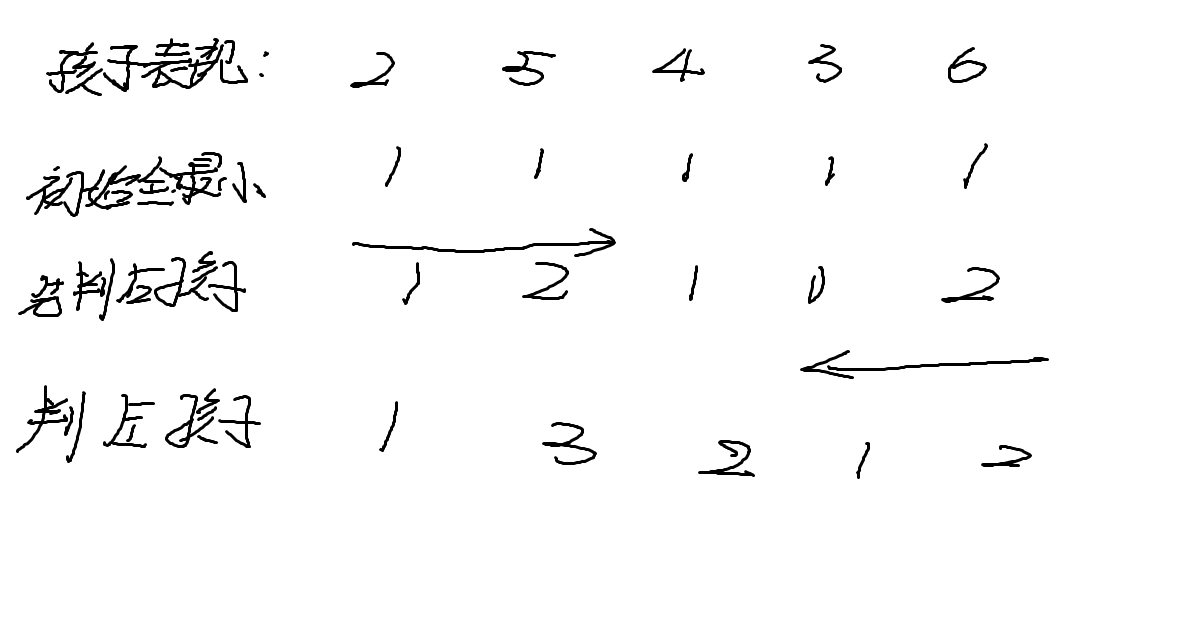 孩子表现: 2 5 4 3 6
初始全最小 1 1 1 1 1
若判左孩子 1 2 1 0 2
判左孩子 1 3 2 1 2